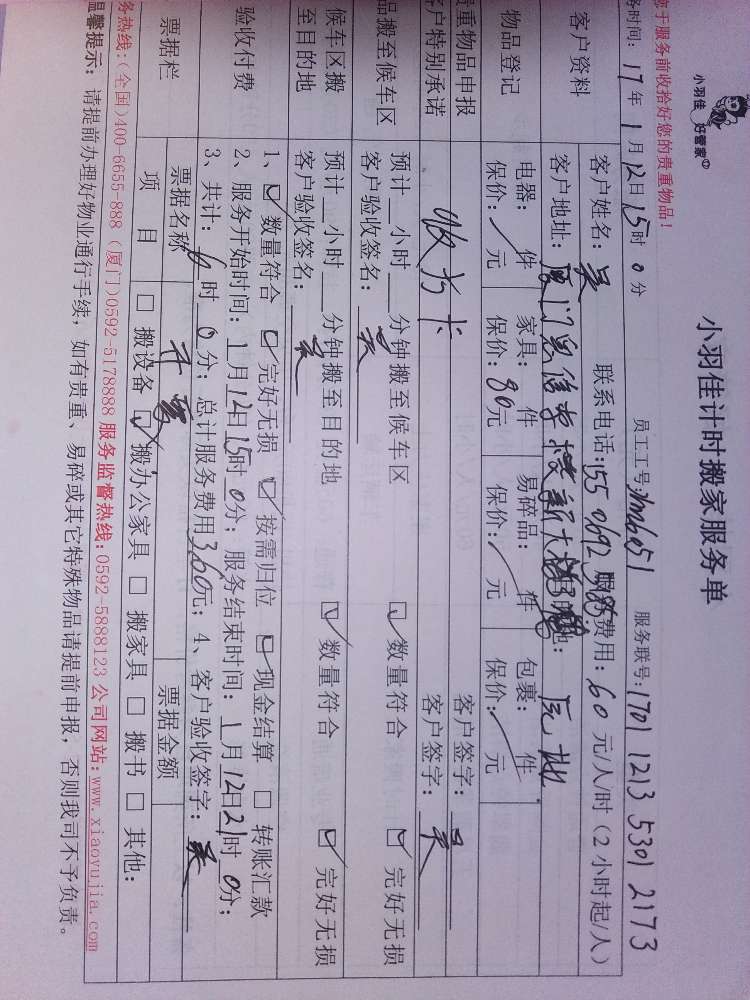 小羽佳 好管家
小羽佳计时搬家服务单
于服务前收拾好您的贵重物品!
务时间: 17年1月12日15时0分 员工工号: 服务联号: 1701 1213 5301 2173
客户资料
客户姓名: 吴 联系电话: 155 0692 服务费用: 60元/人/时(2小时起/人)
客户地址: 原地
物品登记
电器: 件 家具: 件 易碎品: 件 包裹: 件
保价: 元 保价: 80元 保价: 元 保价: 元
贵重物品申报 客户签字: 吴
客户特别承诺 客户签字: 吴
品搬至候车区
预计 小时 分钟搬至候车区 ☑ 数量符合 ☑ 完好无损
客户验收签名: 吴
候车区搬至目的地
预计 小时 分钟搬至目的地 ☑ 数量符合 ☑ 完好无损
客户验收签名: 吴
验收付费
1、☑ 数量符合 ☑ 完好无损 ☑ 按需归位 ☑ 现金结算 □ 转账汇款
2、服务开始时间: 1月12日15时0分; 服务结束时间: 1月12日21时0分;
3、共计: 6时0分; 总计服务费用360元; 4、客户验收签字: 吴
票据栏
票据名称 票据金额
项目 □ 搬设备 ☑ 搬办公家具 □ 搬家具 □ 搬书 □ 其他:
务热线:(全国)400-6655-888 (厦门)0592-5178888 服务监督热线:0592-5888123 公司网站:www.xiaoyujia.com
温馨提示: 请提前办理好物业通行手续, 如有贵重、易碎或其它特殊物品请提前申报, 否则我司不予负责。